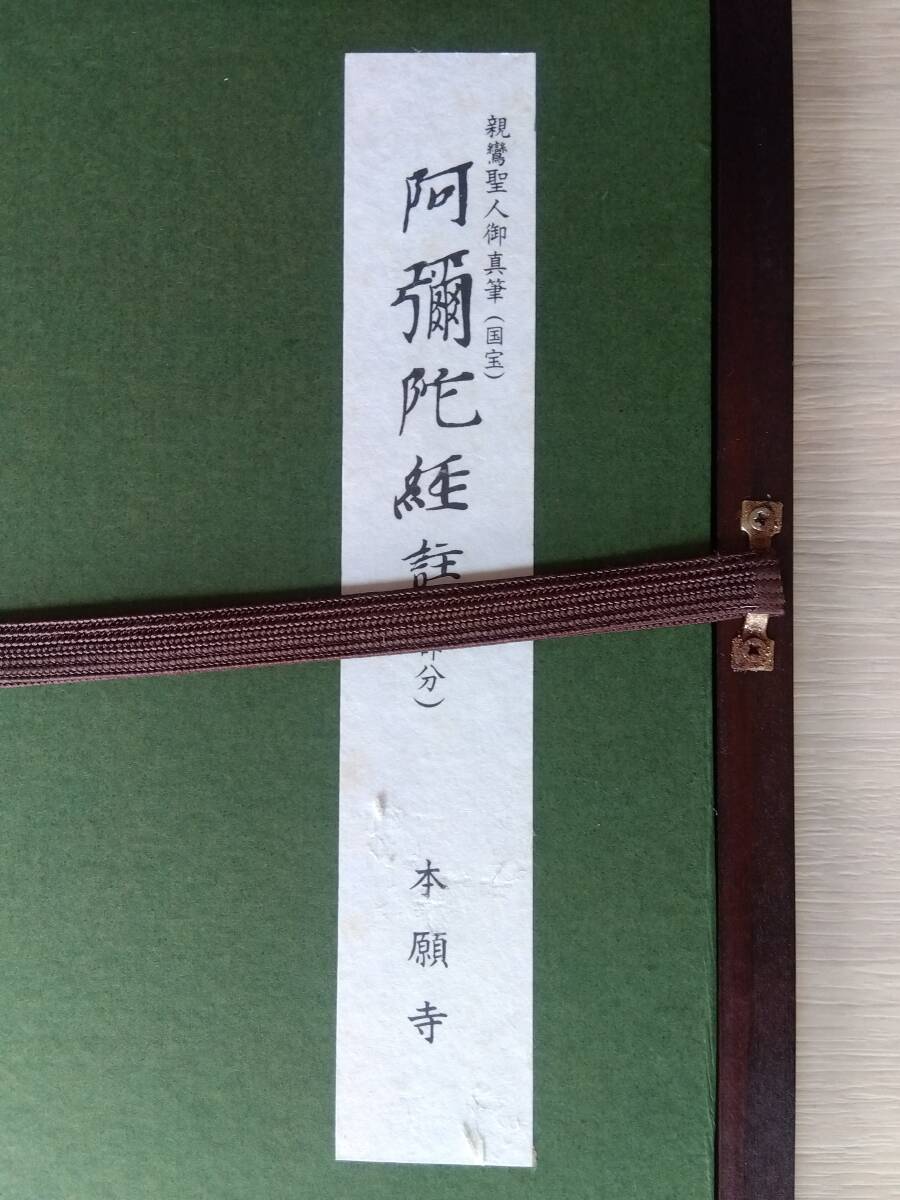 親鸞聖人御真筆(国宝)
阿彌陀経註
分)
本願寺